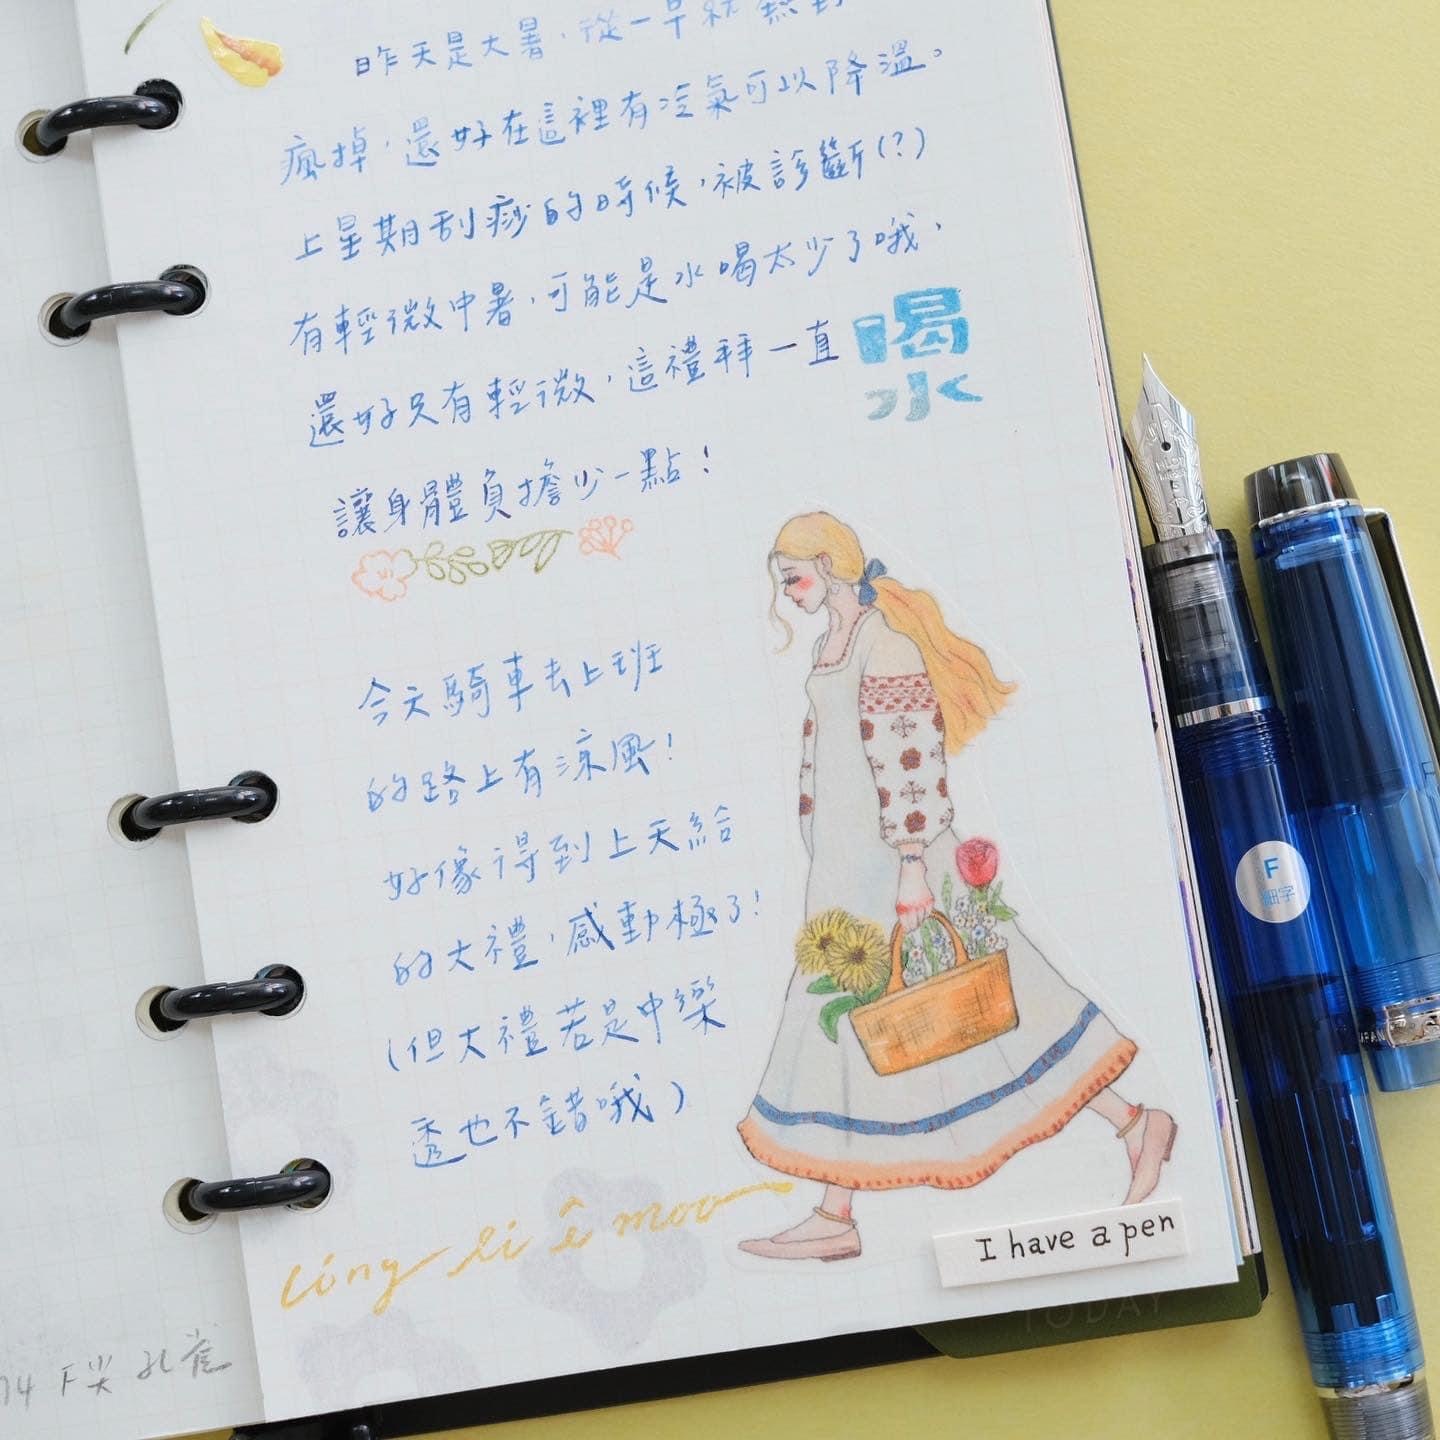 昨天是大暑，從一早就熱到
瘋掉，還好在這裡有冷氣可以降溫。
上星期刮痧的時候，被診斷(？)
有輕微中暑，可能是水喝太少了哦，
還好只有輕微，這禮拜一直喝水
讓身體負擔少一點！
今天騎車去上班
的路上有涼風！
好像得到上天給
的大禮，感動極了！
(但大禮若是中樂
透也不錯哦)
I have a pen
F
細字
TODAY
74 F尖 孔雀